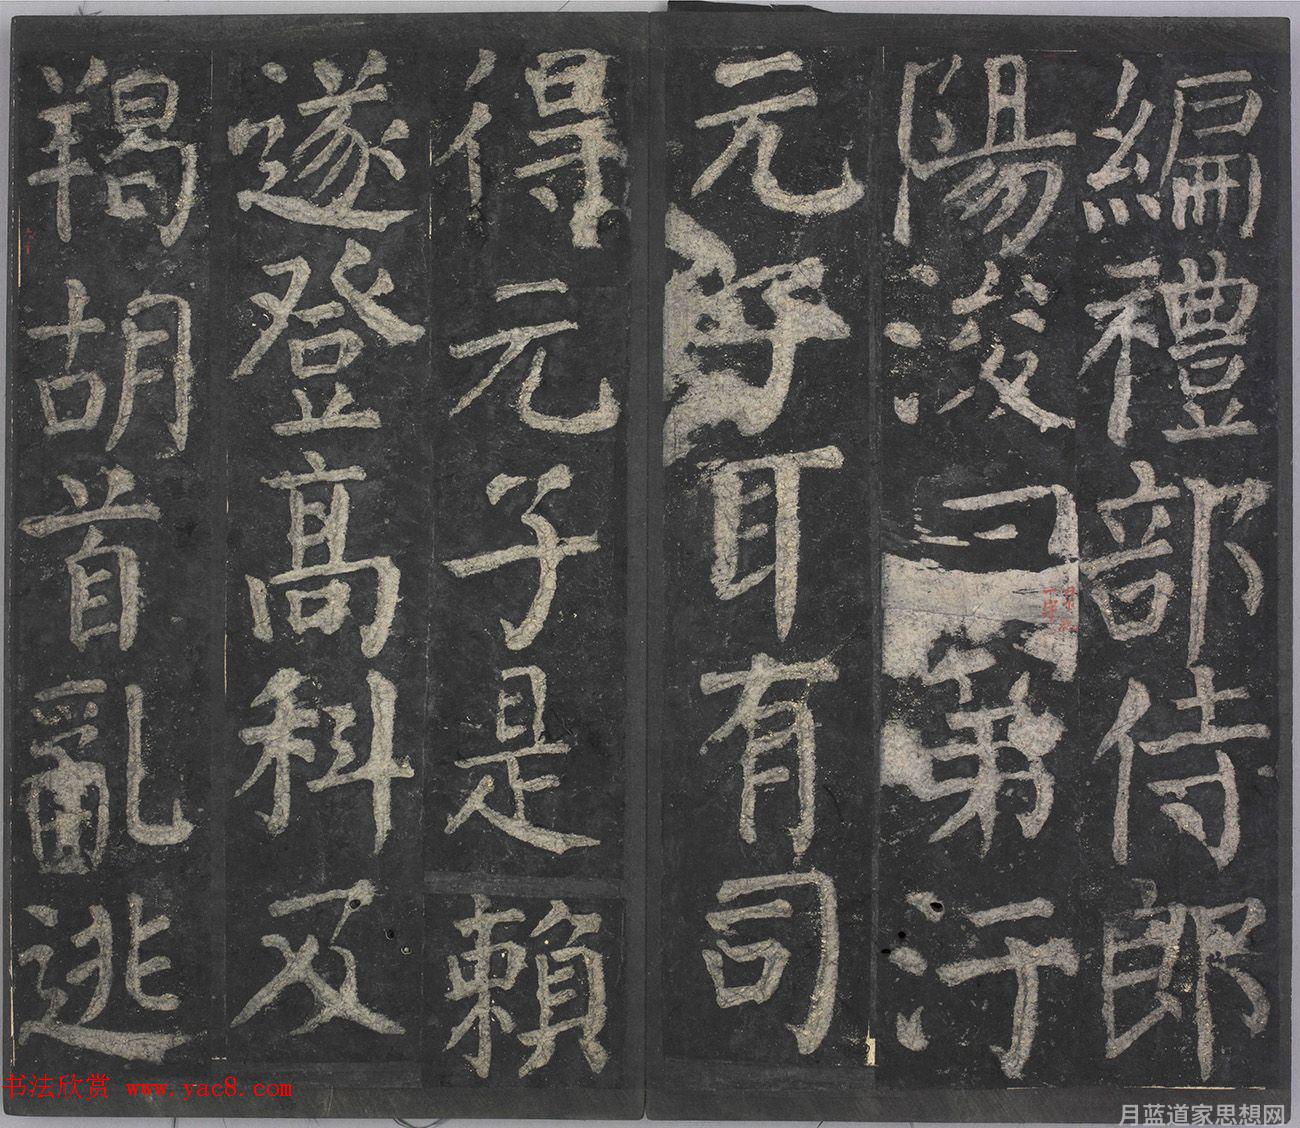 編禮部侍郎
陽浚曰第汙
元子耳有司
得元子是賴
遂登高科及
羯胡首亂逃
书法欣赏 www.yac8.com
月蓝道家思想网